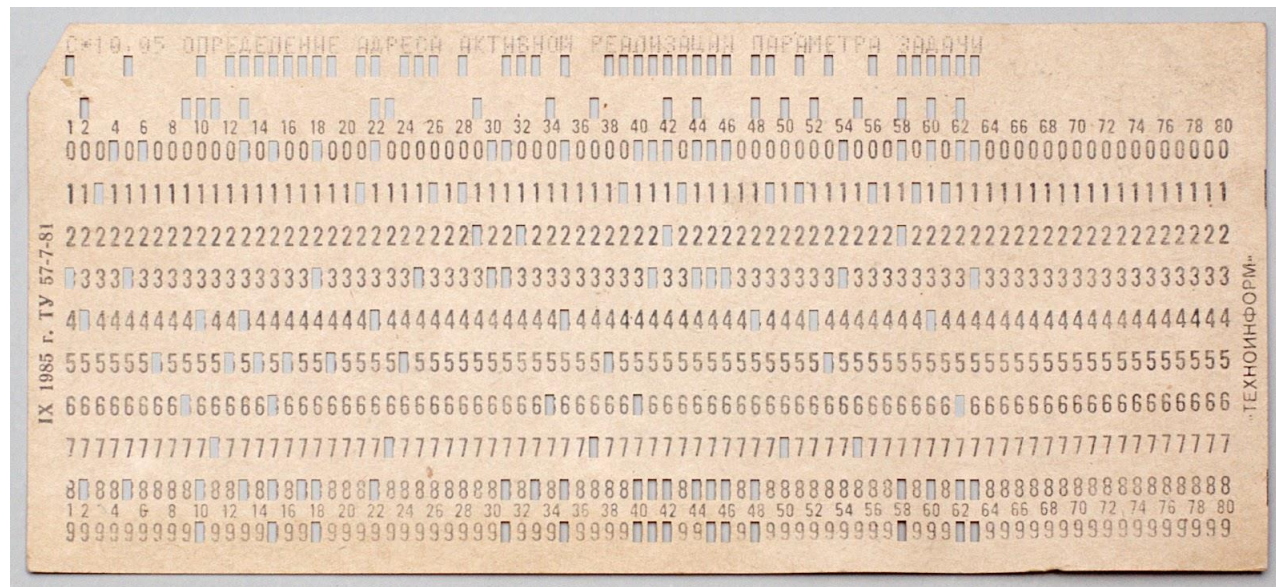 С*10.05 ОПРЕДЕЛЕНИЕ АДРЕСА АКТИВНОЙ РЕАЛИЗАЦИИ ПАРАМЕТРА ЗАДАЧИ
1 2 4 6 8 10 12 14 16 18 20 22 24 26 28 30 32 34 36 38 40 42 44 46 48 50 52 54 56 58 60 62 64 66 68 70 72 74 76 78 80
000 0 000000 0 00 000 0000000 000 0000 0 0000000 000 0 0 00000000000000000
11 11111111111111111 1111 1 1111111111 111 11111 1 1111 11 1 1111111111111111111
2222222222222222222222222222 22 222222222 222222222222222 2222222222222222222222
333 333333333333 333333 3333 333333333 33 3333333 33333333 33333333333333333
4 4444444 44 44444444 444444444444 444444444444 444 4444444 44444444444444444444
555555 5555 5 5 55 5555 5555555555555 55555555555555 555555555555555555555555555
66666666 66666 666666666666666666 66666 666666666666666666666 666666666666666666
7777777777 77777777777 7777777777777 777777777777 7777 7777777777777777777777777
8 88 8888 88 8 8 888 88888888 8 8 8888 8 8 8 888888888 8 8 88888888888888888
1 2 4 6 8 10 12 14 16 18 20 22 24 26 28 30 32 34 36 38 40 42 44 46 48 50 52 54 56 58 60 62 64 66 68 70 72 74 76 78 80
999999999 9999 99 999999999999 999 9999 99 9 999999999 999 99999999999999999
IX 1985 г. ТУ 57-7-81
„ТЕХНОИНФОРМ“